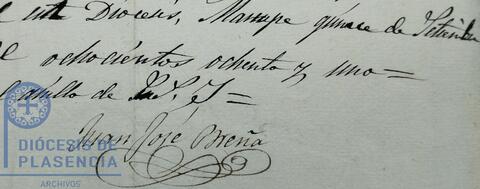 esta Diócesis, quince de Setiembre
ochocientos ochenta y uno =
de S. I =
Juan José Breña
DIÓCESIS DE
PLASENCIA
ARCHIVOS